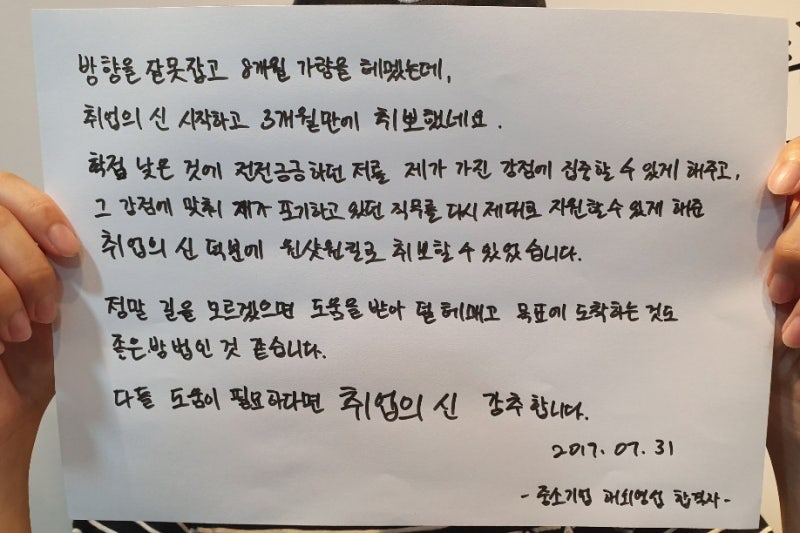 방향을 잘못잡고 8개월 가량을 헤맸는데,
취업의 신 시작하고 3개월만에 취뽀했네요.
학점 낮은 것에 전전긍긍하던 저를 제가 가진 강점에 집중할 수 있게 해주고,
그 강점에 맞춰 제가 포기하고 있던 직무를 다시 제대로 지원할 수 있게 해준
취업의 신 덕분에 원샷원킬로 취뽀할 수 있었습니다.
정말 길을 모르겠으면 도움을 받아 덜 헤매고 목표에 도착하는 것도
좋은 방법인 것 같습니다.
다들 도움이 필요하다면 취업의 신 강추합니다.
2017. 07. 31
- 중소기업 해외영업 합격자 -